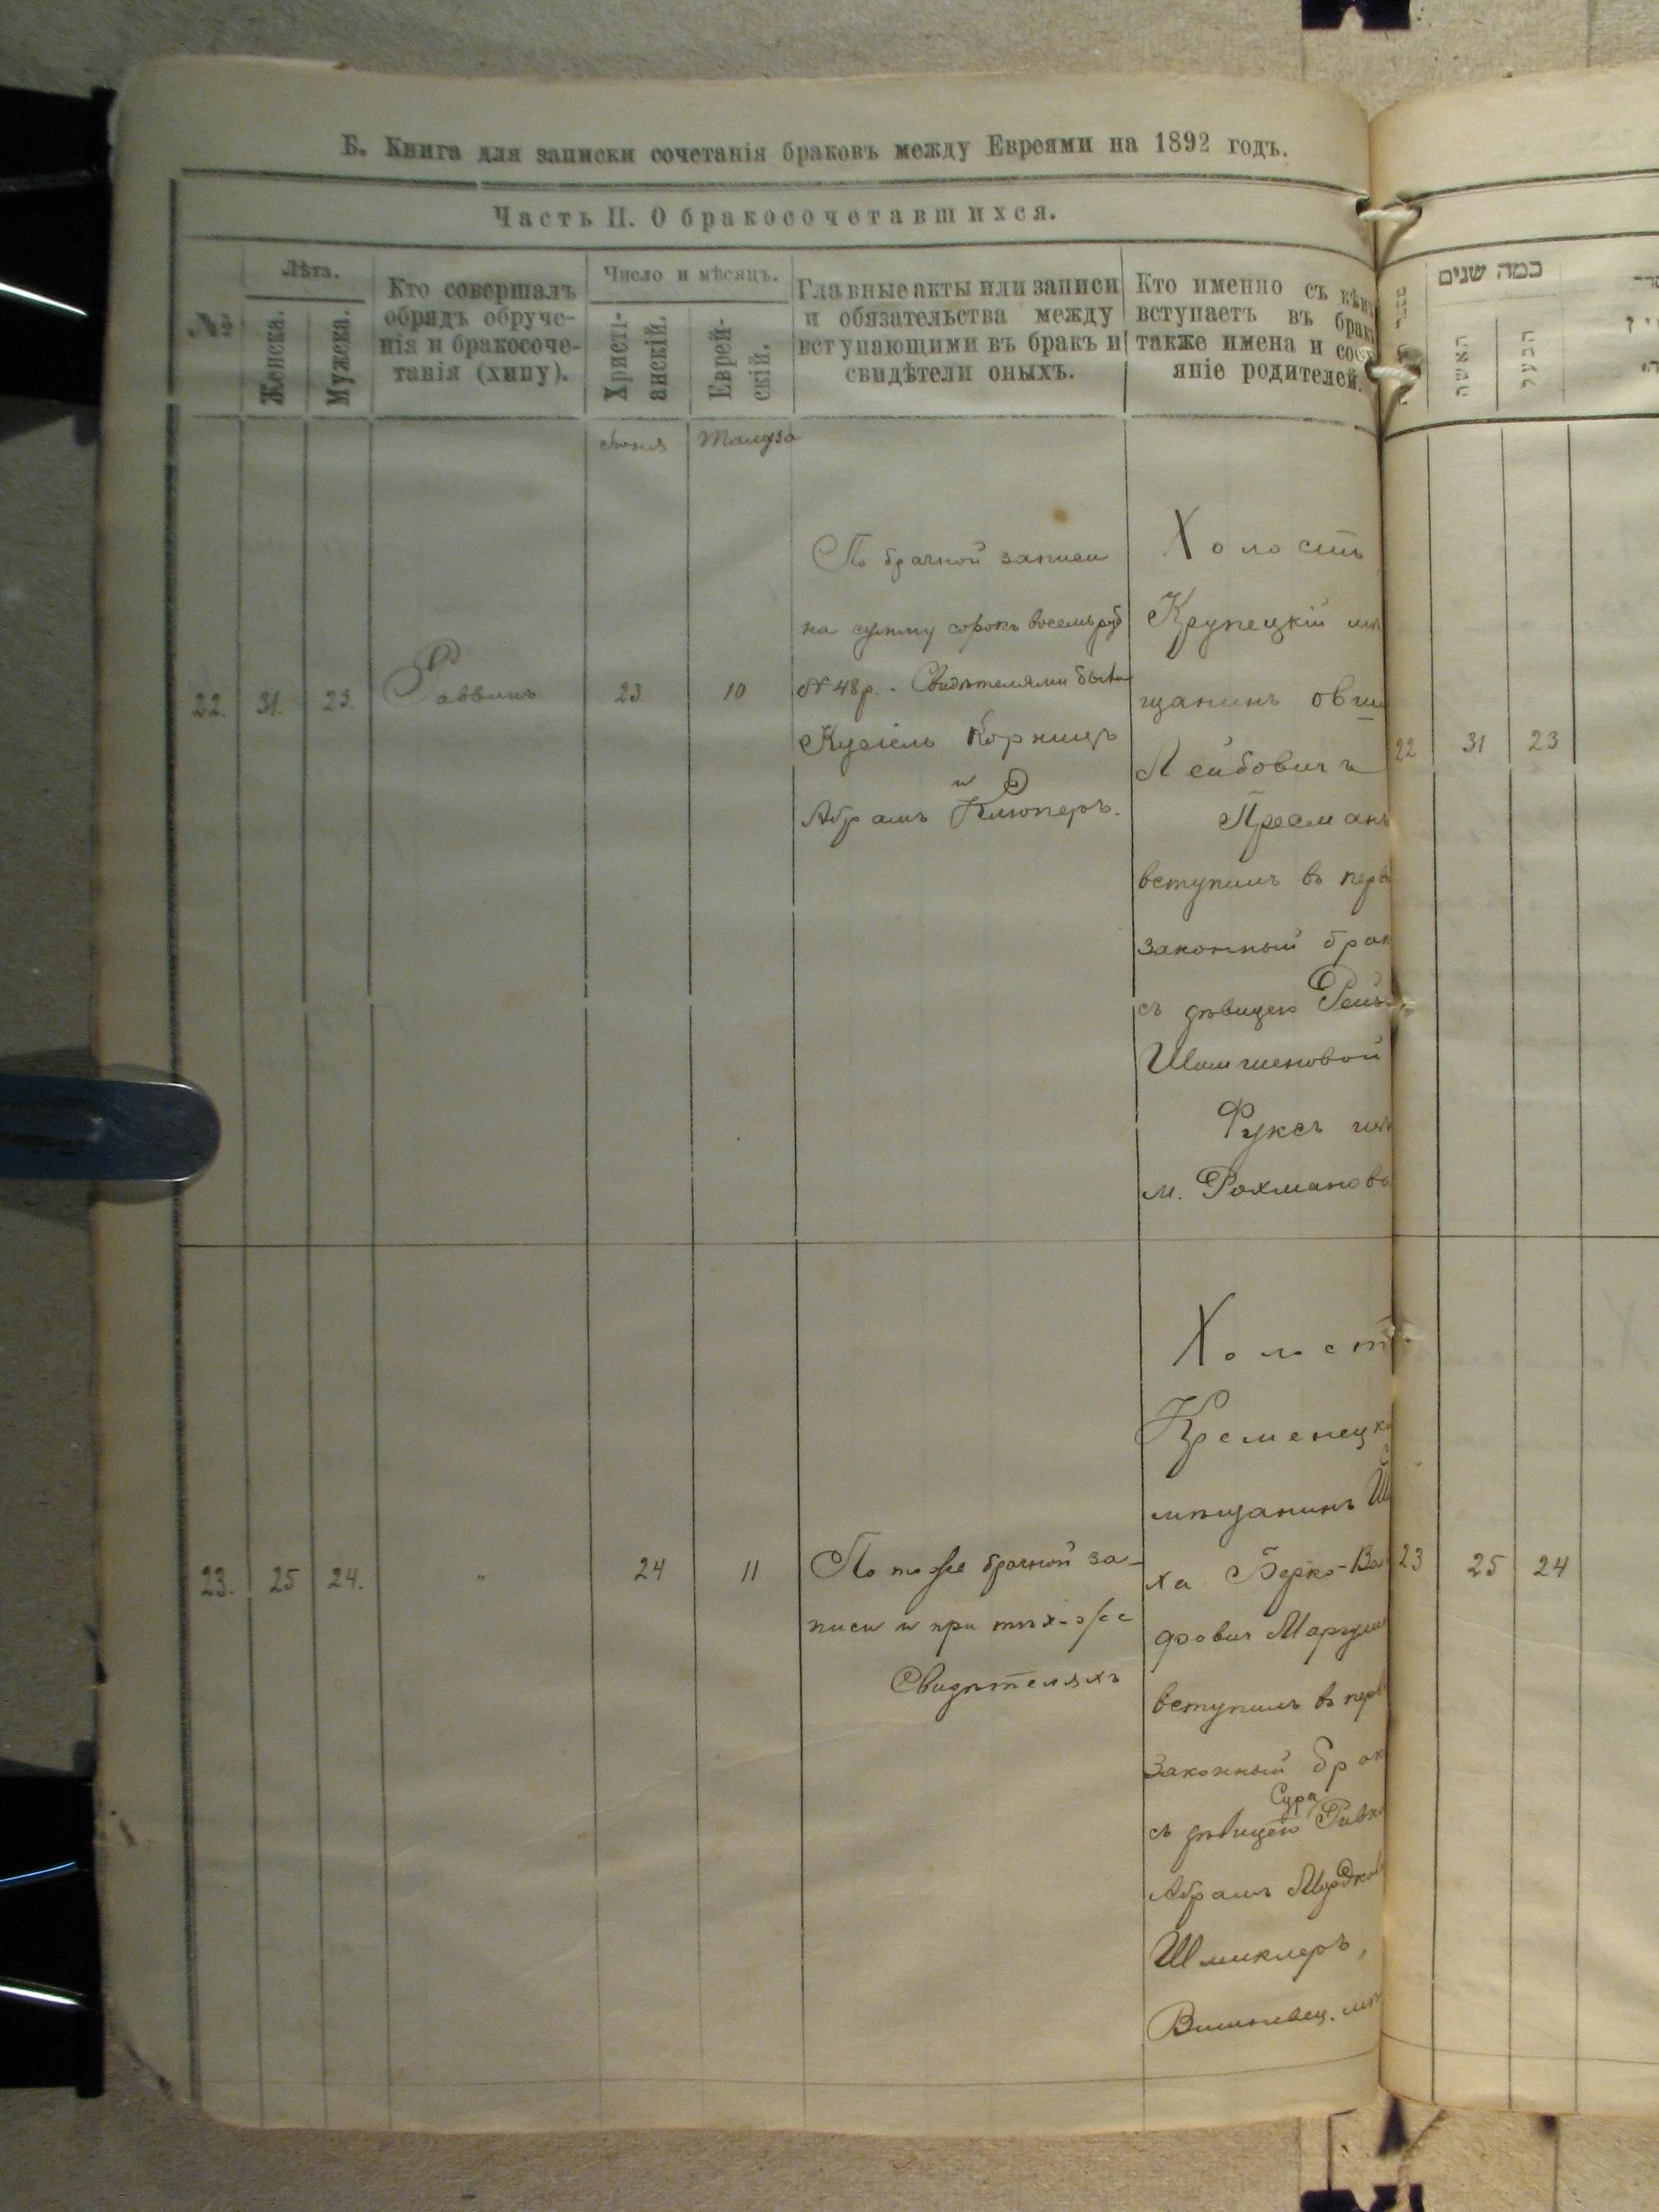 Б. Книга для записки сочетанія браковъ между Евреями на 1892 годъ.
Часть II. О бракосочетавшихся.
№
Лѣта.
Женска.
Мужска.
Кто совершалъ
обрядъ обруче-
нія и бракосоче-
танія (хипу).
Число и мѣсяцъ.
Христі-
анскій.
Еврей-
скій.
Главные акты или записи
и обязательства между
вступающими въ бракъ и
свидѣтели оныхъ.
Кто именно съ кѣмъ
вступаетъ въ бракъ
также имена и сост
яніе родителей.
Іюня
Тамуза
22.
31.
23.
Раввинъ
23
10
По брачной записи
на сумму сорокъ восемь руб
№ 48 р. - Свидѣтелями были
Кузіель Корницъ
и
Абрамъ Клюперъ.
Холостъ
Крупецкій мѣ
щанинъ Овши
Лейбовичъ
Пресманъ
вступилъ въ перв
законный брак
съ дѣвицею Рейз
Шимшеновой
Фуксъ
м. Рохманово
23.
25
24.
"
24
11
По той же брачной за-
писи и при тѣхъ-же
Свидѣтеляхъ
Холост
Кременецкі
мѣщанинъ Ш
ха Берко-Вол
фович Маргули
вступилъ въ перв
законный брак
Сура
съ дѣвицею Ривк
Абрамъ Мордков
Шмиклеръ,
Вишневец. мѣ
כמה שנים
האשה
הבעל
22
31
23
23
25
24